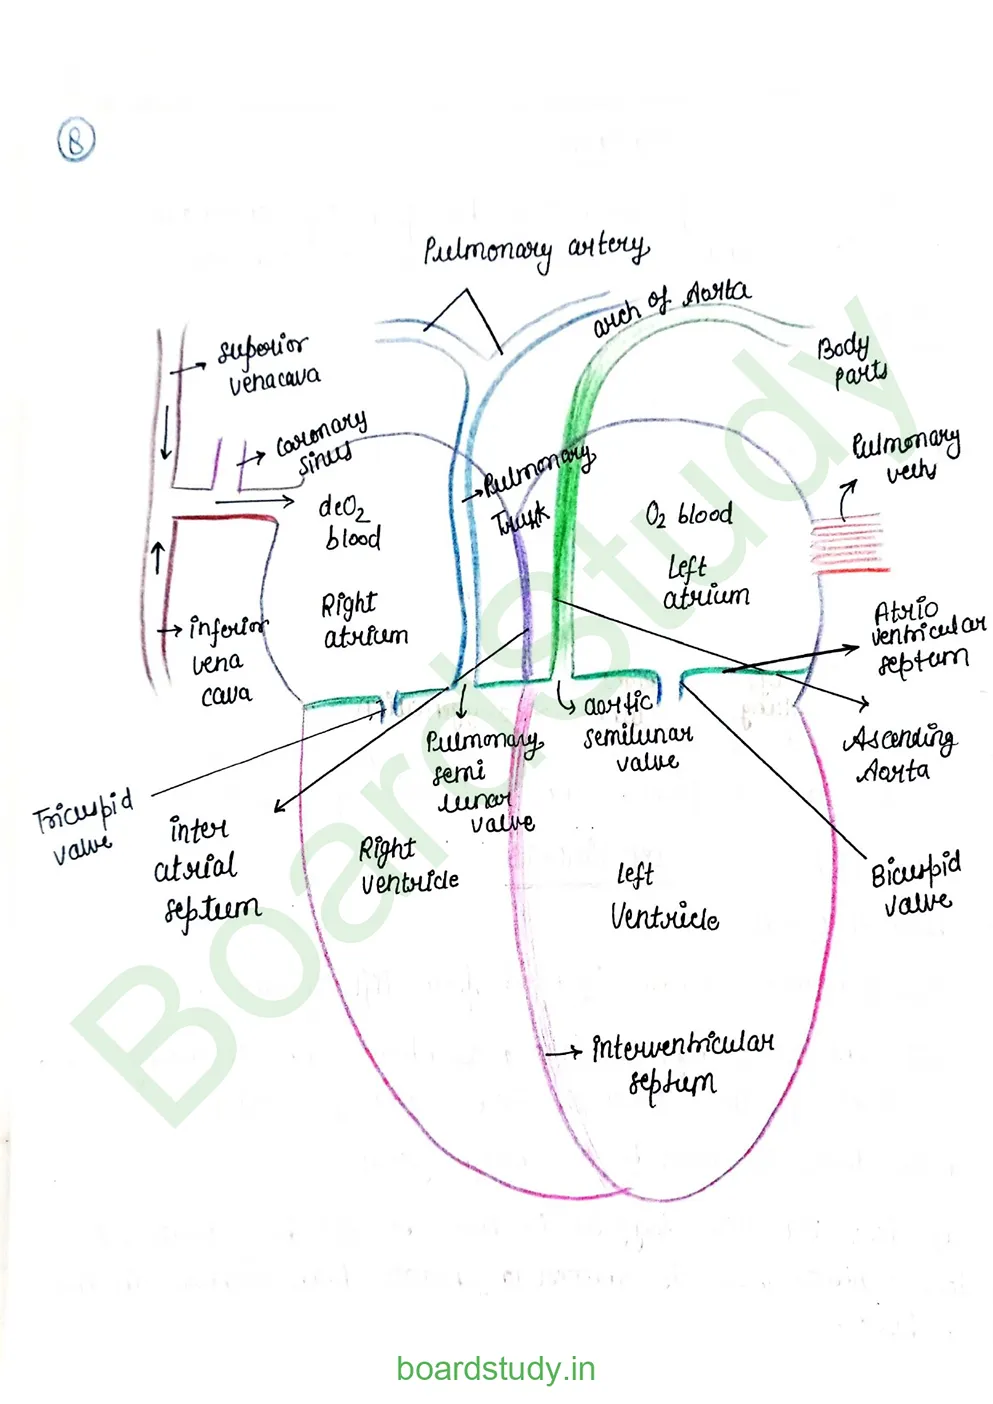 8
Pulmonary artery
arch of Aorta
Body
parts
superior
venacava
coronary
sinus
Pulmonary
Pulmonary
Trunk
deO2
blood
O2 blood
Left
atrium
Right
atrium
inferior
vena
cava
Atrio
ventricular
septum
Pulmonary
semi
lunar
valve
aortic
semilunar
valve
Ascending
Aorta
Tricuspid
valve
inter
atrial
septum
Right
ventricle
Left
Ventricle
Bicuspid
valve
interventricular
septum
Boardstudy
boardstudy.in